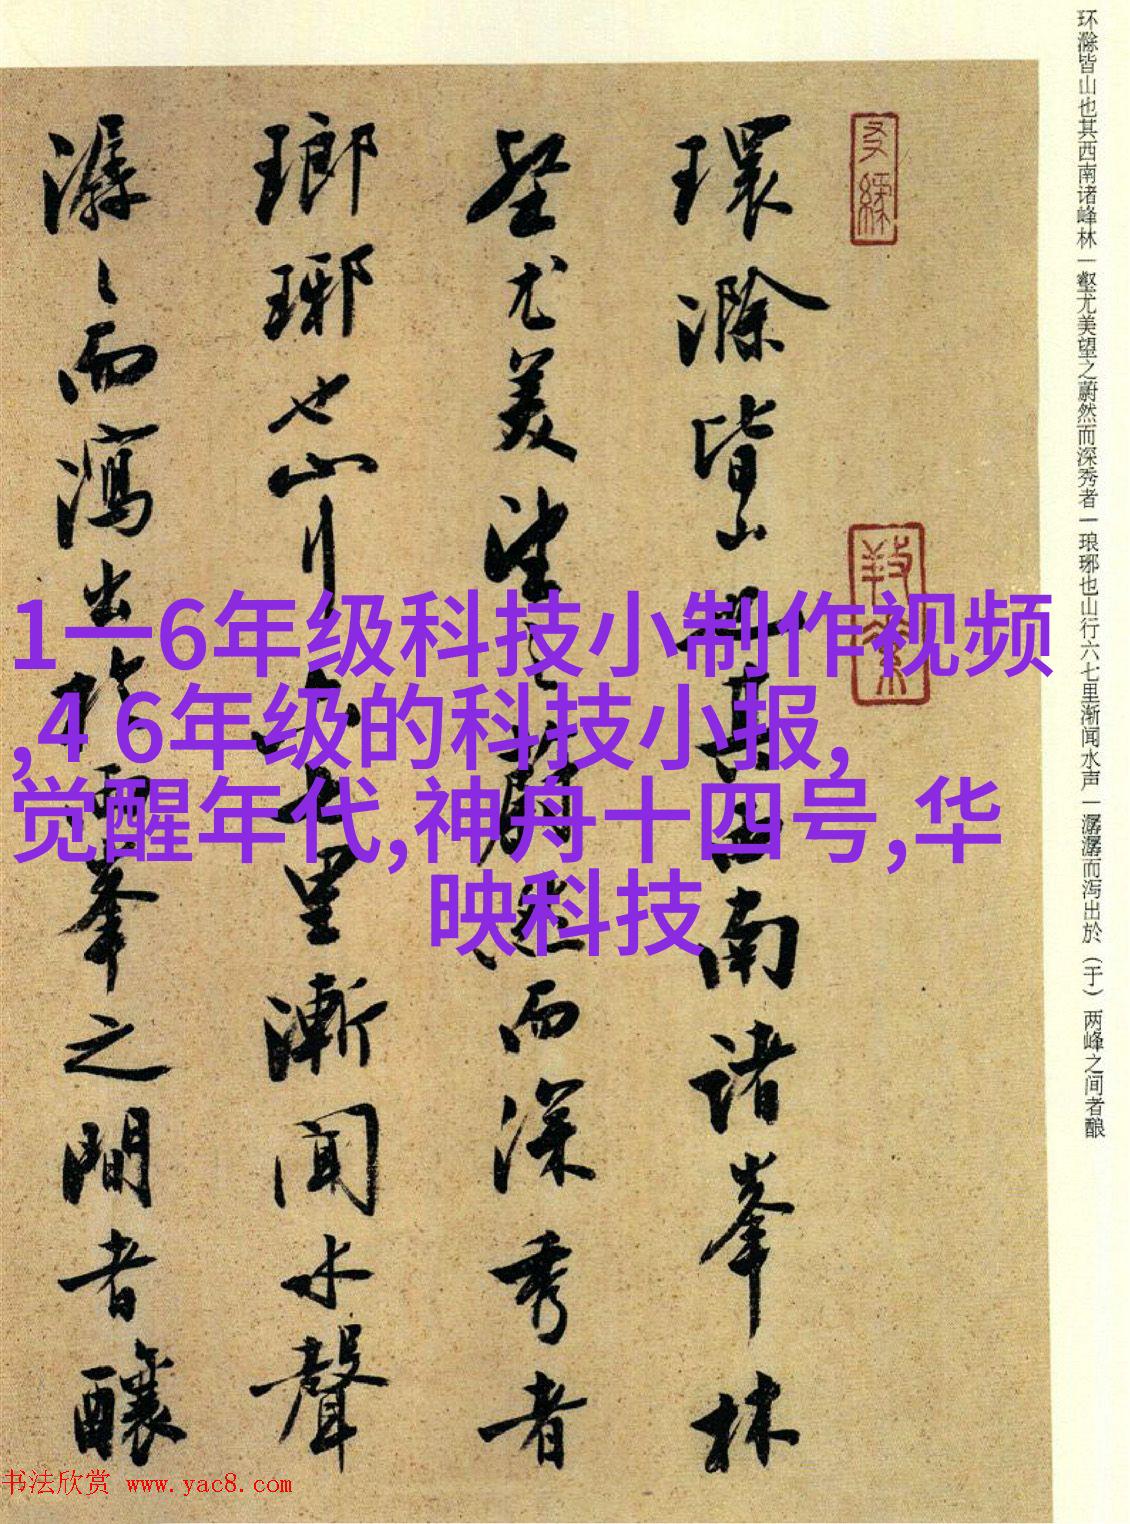 环滁皆山也其西南诸峰林一壑尤美望之蔚然而深秀者一琅琊也山行六七里渐闻水声一潺潺而泻出於（于）两峰之间者酿
環滁皆山也其西南諸峯林
壑尤美望之蔚然而深秀者
瑯琊也山行六七里漸聞水聲
潺々而瀉出於兩峯之間者釀
1一6年级科技小制作视频
,4 6年级的科技小报,
觉醒年代,神舟十四号,华
映科技
书法欣赏 www.yac8.com